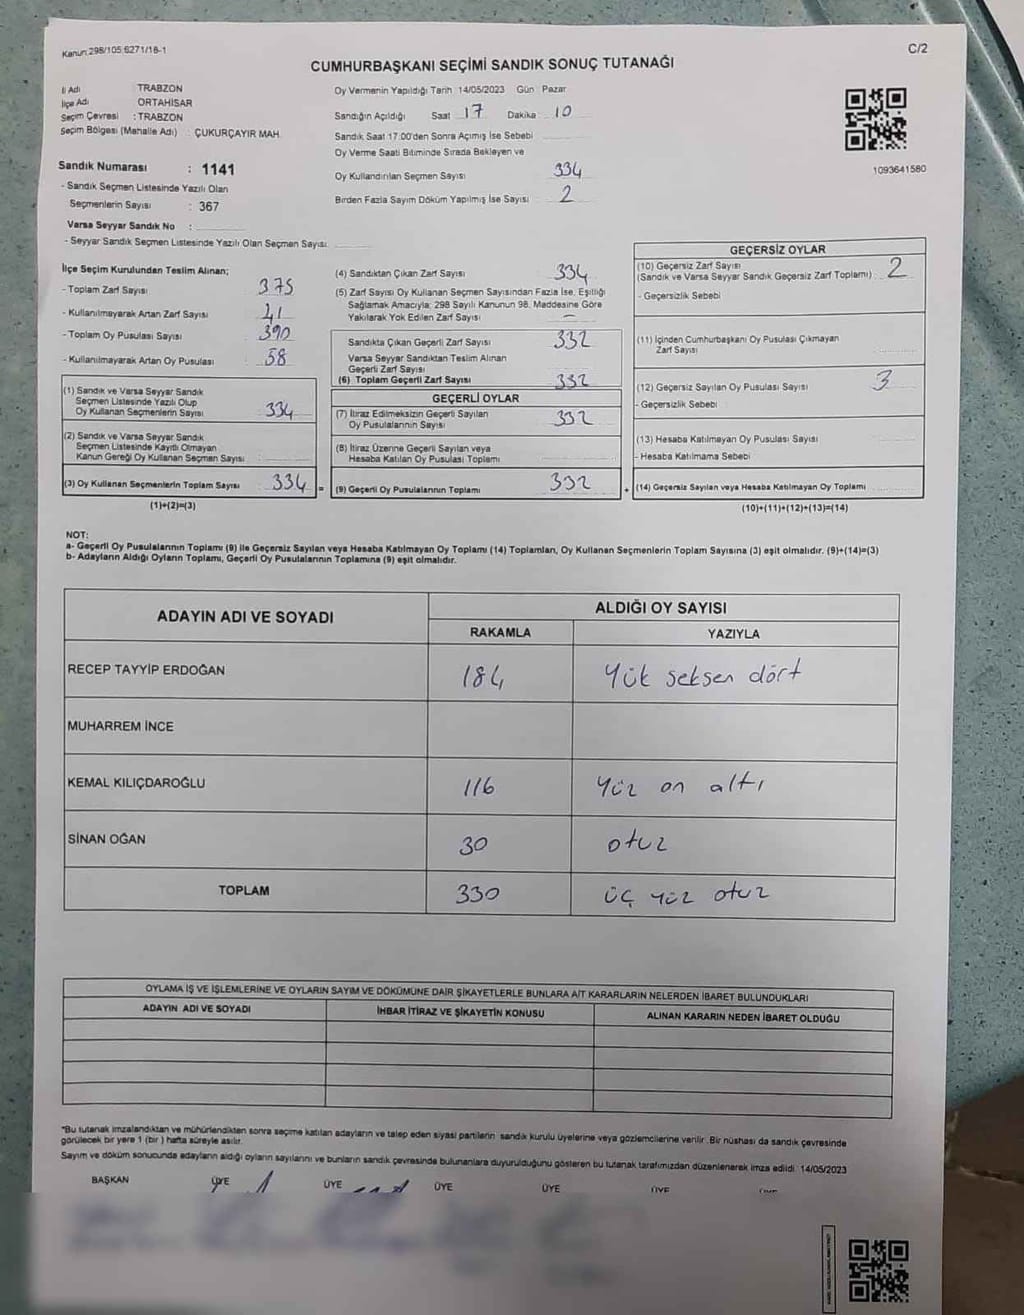 Kanun:298/105 6271/18-1
C/2
CUMHURBAŞKANI SEÇİMİ SANDIK SONUÇ TUTANAĞI
İl Adı TRABZON
İlçe Adı ORTAHİSAR
Seçim Çevresi : TRABZON
Seçim Bölgesi (Mahalle Adı) : ÇUKURÇAYIR MAH.
Sandık Numarası : 1141
- Sandık Seçmen Listesinde Yazılı Olan
Seçmenlerin Sayısı : 367
Varsa Seyyar Sandık No :
- Seyyar Sandık Seçmen Listesinde Yazılı Olan Seçmen Sayısı
Oy Vermenin Yapıldığı Tarih 14/05/2023 Gün Pazar
Sandığın Açıldığı Saat 17 Dakika 10
Sandık Saat 17:00'den Sonra Açımış İse Sebebi
Oy Verme Saati Bitiminde Sırada Bekleyen ve
Oy Kullandırılan Seçmen Sayısı 334
Birden Fazla Sayım Döküm Yapılmış İse Sayısı 2
1093641580
İlçe Seçim Kurulundan Teslim Alınan;
- Toplam Zarf Sayısı 375
- Kullanılmayarak Artan Zarf Sayısı 41
- Toplam Oy Pusulası Sayısı 390
- Kullanılmayarak Artan Oy Pusulası 58
(1) Sandık ve Varsa Seyyar Sandık
Seçmen Listesinde Yazılı Olup
Oy Kullanan Seçmenlerin Sayısı 334
(2) Sandık ve Varsa Seyyar Sandık
Seçmen Listesinde Kayıtlı Olmayan
Kanun Gereği Oy Kullanan Seçmen Sayısı
(3) Oy Kullanan Seçmenlerin Toplam Sayısı 334 =
(1)+(2)=(3)
(4) Sandıktan Çıkan Zarf Sayısı 334
(5) Zarf Sayısı Oy Kullanan Seçmen Sayısından Fazla İse, Eşitliği
Sağlamak Amacıyla; 298 Sayılı Kanunun 98. Maddesine Göre
Yakılarak Yok Edilen Zarf Sayısı –
Sandıkta Çıkan Geçerli Zarf Sayısı 332
Varsa Seyyar Sandıktan Teslim Alınan
Geçerli Zarf Sayısı
(6) Toplam Geçerli Zarf Sayısı 332
GEÇERLİ OYLAR
(7) İtiraz Edilmeksizin Geçerli Sayılan
Oy Pusulalarının Sayısı 332
(8) İtiraz Üzerine Geçerli Sayılan veya
Hesaba Katılan Oy Pusulası Toplamı
(9) Geçerli Oy Pusulalarının Toplamı 332 +
GEÇERSİZ OYLAR
(10) Geçersiz Zarf Sayısı
(Sandık ve Varsa Seyyar Sandık Geçersiz Zarf Toplamı) : 2
- Geçersizlik Sebebi
(11) İçinden Cumhurbaşkanı Oy Pusulası Çıkmayan
Zarf Sayısı
(12) Geçersiz Sayılan Oy Pusulası Sayısı 3
- Geçersizlik Sebebi
(13) Hesaba Katılmayan Oy Pusulası Sayısı
- Hesaba Katılmama Sebebi
(14) Geçersiz Sayılan veya Hesaba Katılmayan Oy Toplamı
(10)+(11)+(12)+(13)=(14)
NOT:
a- Geçerli Oy Pusulalarının Toplamı (9) ile Geçersiz Sayılan veya Hesaba Katılmayan Oy Toplamı (14) Toplamları, Oy Kullanan Seçmenlerin Toplam Sayısına (3) eşit olmalıdır. (9)+(14)=(3)
b- Adayların Aldığı Oyların Toplamı, Geçerli Oy Pusulalarının Toplamına (9) eşit olmalıdır.
ADAYIN ADI VE SOYADI ALDIĞI OY SAYISI
RAKAMLA YAZIYLA
RECEP TAYYİP ERDOĞAN 184 Yük seksen dört
MUHARREM İNCE
KEMAL KILIÇDAROĞLU 116 Yüz on altı
SİNAN OĞAN 30 otuz
TOPLAM 330 üç yüz otuz
OYLAMA İŞ VE İŞLEMLERİNE VE OYLARIN SAYIM VE DÖKÜMÜNE DAİR ŞİKAYETLERLE BUNLARA AİT KARARLARIN NELERDEN İBARET BULUNDUKLARI
ADAYIN ADI VE SOYADI İHBAR İTİRAZ VE ŞİKAYETİN KONUSU ALINAN KARARIN NEDEN İBARET OLDUĞU
*Bu tutanak imzalandıktan ve mühürlendikten sonra seçime katılan adayların ve talep eden siyasi partilerin sandık kurulu üyelerine veya gözlemcilerine verilir. Bir nüshası da sandık çevresinde
görülecek bir yere 1 (bir) hafta süreyle asılır.
Sayım ve döküm sonucunda adayların aldığı oyların sayılarını ve bunların sandık çevresinde bulunanlara duyurulduğunu gösteren bu tutanak tarafımızdan düzenlenerek imza edildi. 14/05/2023
BAŞKAN ÜYE ÜYE ÜYE ÜYE ÜYE ÜYE